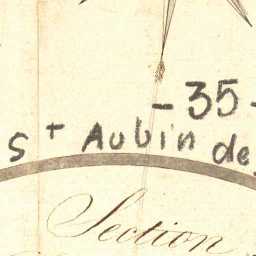 - 35 -
St Aubin de
Section